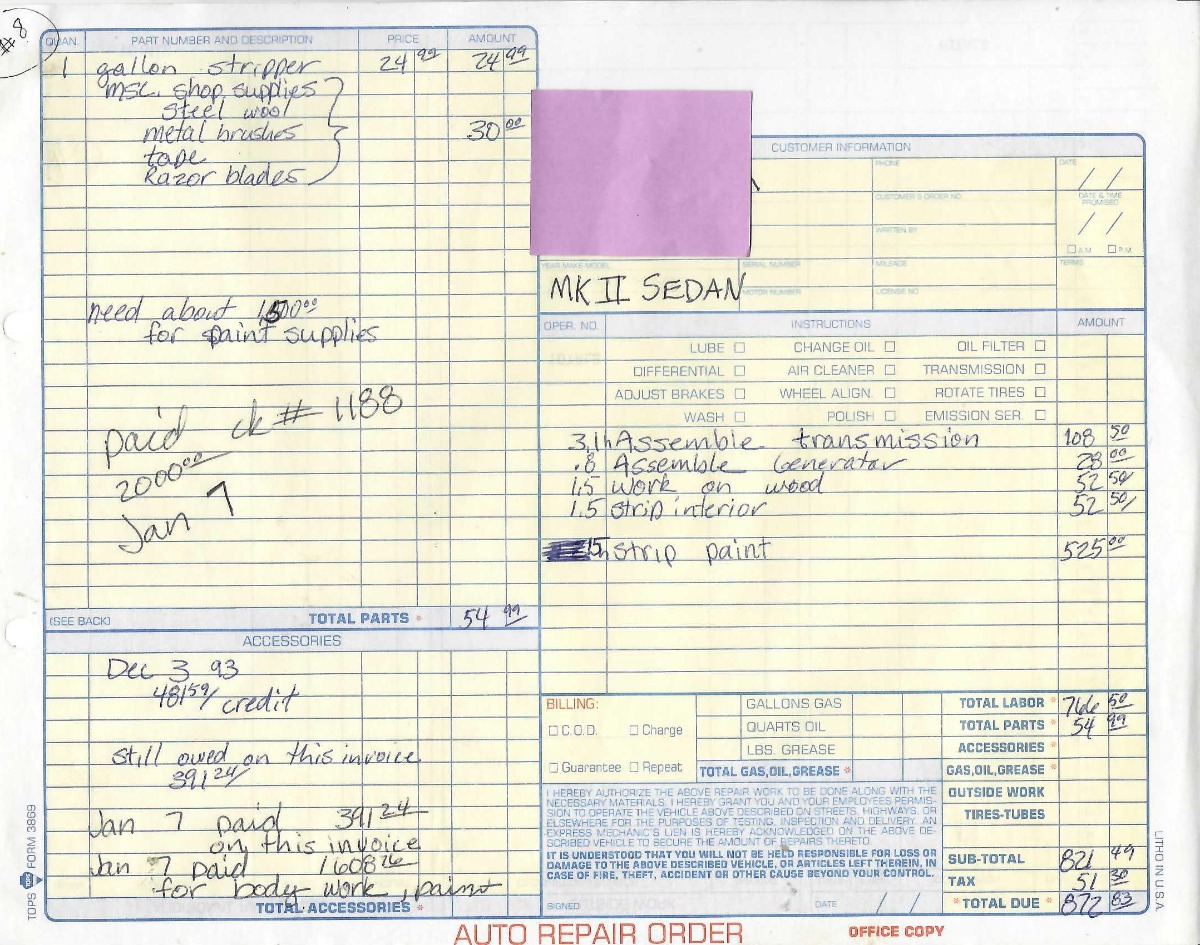 #8
QUAN. PART NUMBER AND DESCRIPTION PRICE AMOUNT
1 gallon stripper 24 99 24 99
msc. shop supplies
steel wool
metal brushes 30 00
tape
Razor blades
need about 1500 00
for paint supplies
paid ck # 1188
2000 00
Jan 7
(SEE BACK) TOTAL PARTS * 54 99
ACCESSORIES
Dec 3 93
481 59/ credit
still owed on this invoice
391 24/
Jan 7 paid 391 24
on this invoice
Jan 7 paid 1608 76
for body work, paint
TOTAL ACCESSORIES *
TOPS FORM 3869
CUSTOMER INFORMATION
PHONE DATE
/ /
CUSTOMER'S ORDER NO. DATE & TIME PROMISED
/ /
WRITTEN BY
A.M. P.M.
YEAR MAKE MODEL SERIAL NUMBER MILEAGE TERMS
MK II SEDAN
MOTOR NUMBER LICENSE NO.
OPER. NO. INSTRUCTIONS AMOUNT
LUBE CHANGE OIL OIL FILTER
DIFFERENTIAL AIR CLEANER TRANSMISSION
ADJUST BRAKES WHEEL ALIGN. ROTATE TIRES
WASH POLISH EMISSION SER.
3.1h Assemble transmission 108 50
.8 Assemble Generator 28 00
1.5 work on wood 52 50/
1.5 strip interior 52 50/
15h strip paint 525 00
BILLING:
C.O.D. Charge
Guarantee Repeat
GALLONS GAS
QUARTS OIL
LBS. GREASE
TOTAL GAS, OIL, GREASE *
TOTAL LABOR * 766 50
TOTAL PARTS * 54 99
ACCESSORIES *
GAS, OIL, GREASE *
OUTSIDE WORK
TIRES-TUBES
SUB-TOTAL 821 49
TAX 51 30
*TOTAL DUE * 872 83
I HEREBY AUTHORIZE THE ABOVE REPAIR WORK TO BE DONE ALONG WITH THE
NECESSARY MATERIALS. I HEREBY GRANT YOU AND YOUR EMPLOYEES PERMIS-
SION TO OPERATE THE VEHICLE ABOVE DESCRIBED ON STREETS, HIGHWAYS, OR
ELSEWHERE FOR THE PURPOSES OF TESTING, INSPECTION AND DELIVERY. AN
EXPRESS MECHANIC'S LIEN IS HEREBY ACKNOWLEDGED ON THE ABOVE DE-
SCRIBED VEHICLE TO SECURE THE AMOUNT OF REPAIRS THERETO.
IT IS UNDERSTOOD THAT YOU WILL NOT BE HELD RESPONSIBLE FOR LOSS OR
DAMAGE TO THE ABOVE DESCRIBED VEHICLE, OR ARTICLES LEFT THEREIN, IN
CASE OF FIRE, THEFT, ACCIDENT OR OTHER CAUSE BEYOND YOUR CONTROL.
SIGNED DATE / /
LITHO IN U.S.A.
AUTO REPAIR ORDER OFFICE COPY